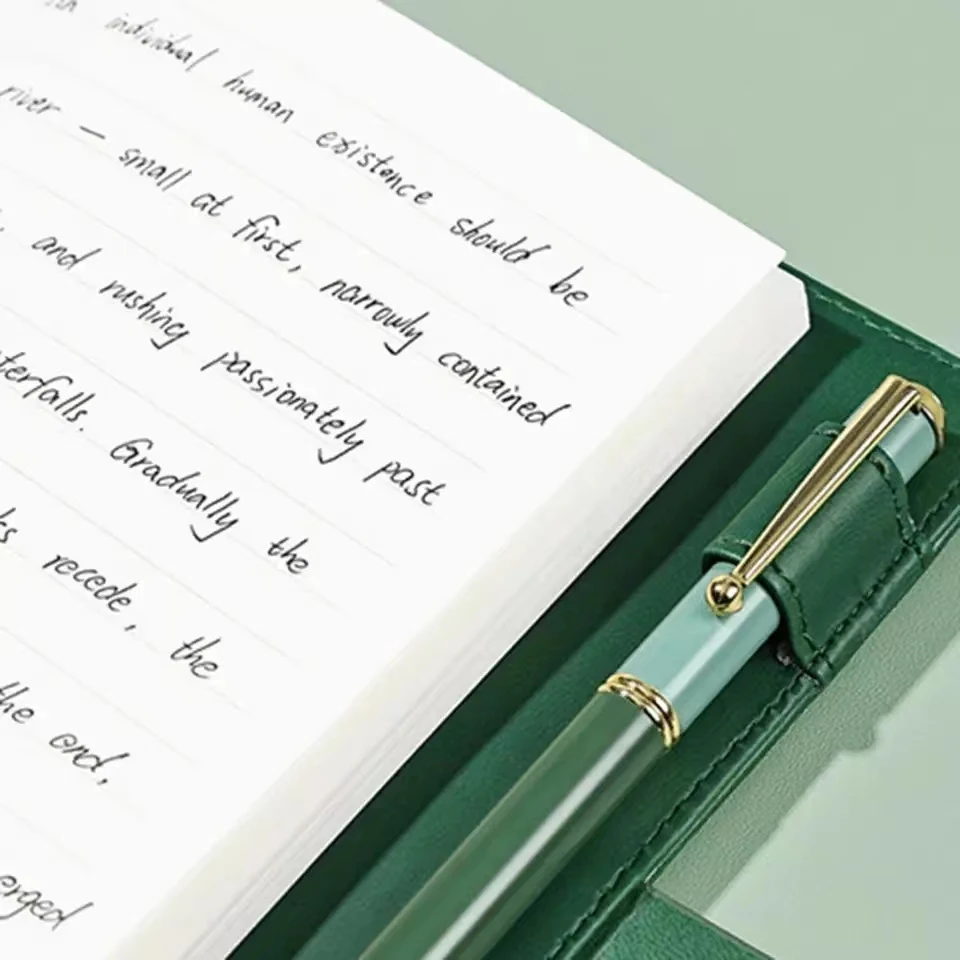 individual human existence should be
river — small at first, narrowly contained
and rushing passionately past
terfalls. Gradually the
recede, the
the end,
erged